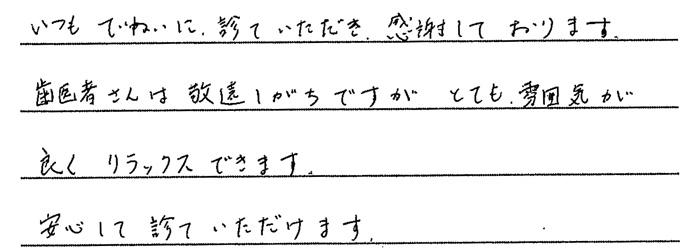 いつも ていねいに、診て いただき、感謝して おります。
歯医者さんは 敬遠しがちですが とても、雰囲気が
良く リラックス できます。
安心して 診て いただけます。